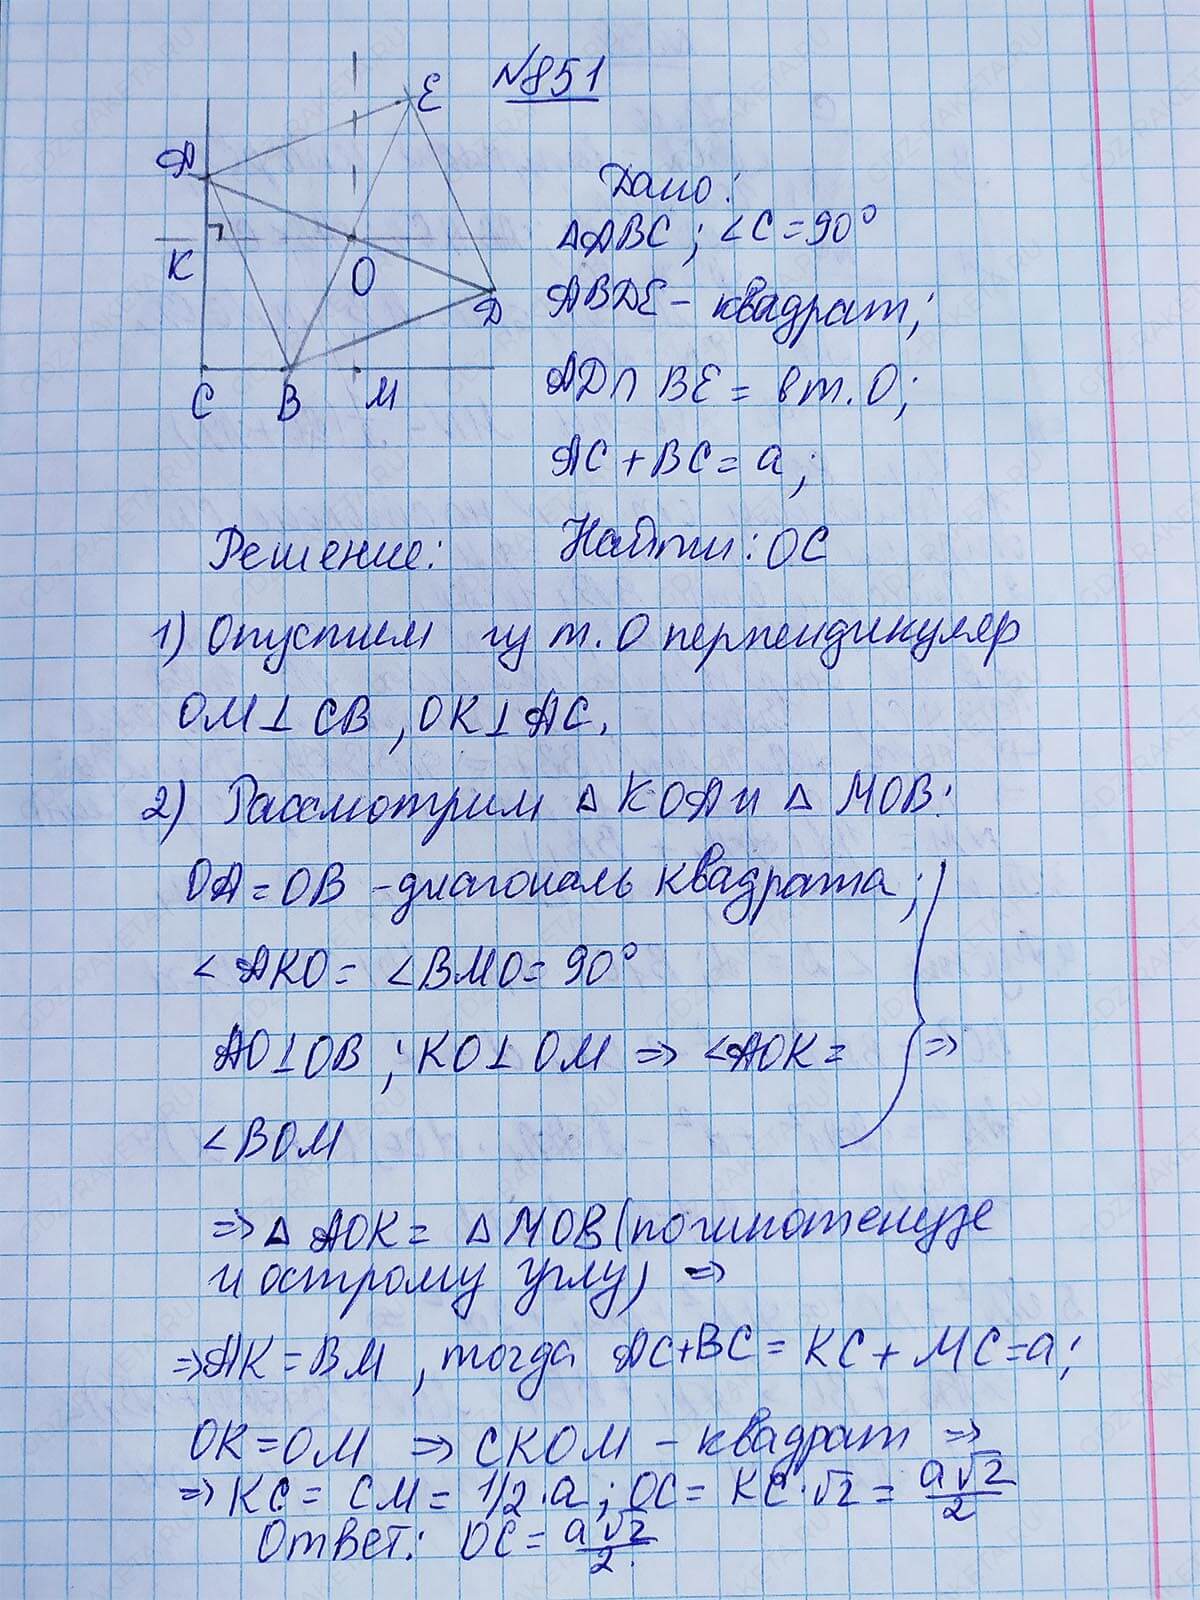 №851
E
A
K
O
D
C B M
Дано:
△ABC; ∠C=90°
ABDE - квадрат;
AD∩BE = в т. O;
AC+BC=a;
Решение: Найти: OC
1) Опустим из т. O перпендикуляр
OM⊥CB, OK⊥AC.
2) Рассмотрим △KOA и △MOB:
OA=OB - диагональ квадрата;
∠AKO=∠BMO=90°
AO⊥OB; KO⊥OM ⇒ ∠AOK= ⇒
∠BOM
⇒ △AOK=△MOB (по гипотенузе
и острому углу) ⇒
⇒ AK=BM, тогда AC+BC=KC+MC=a;
OK=OM ⇒ CKOM - квадрат ⇒
⇒ KC=CM=1/2·a; OC=KC·√2=a√2/2
Ответ: OC=a√2/2.